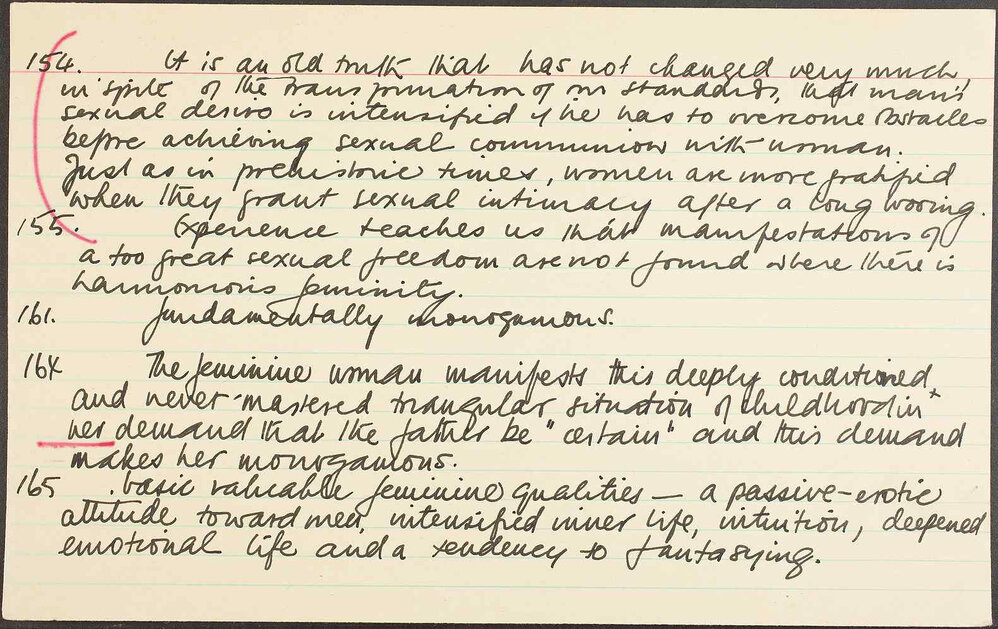 154. It is an old truth that has not changed very much,
in spite of the transformation of our standards, that man's
sexual desire is intensified if he has to overcome obstacles
before achieving sexual communion with woman.
Just as in prehistoric times, women are more gratified
when they grant sexual intimacy after a long wooing.
155. Experience teaches us that manifestations of
a too great sexual freedom are not found where there is
harmonious femininity.
161. fundamentally monogamous.
164 The feminine woman manifests this deeply conditioned
and never-mastered triangular situation of childhood in +
her demand that the father be "certain" and this demand
makes her monogamous.
165 . basic valuable feminine qualities — a passive-erotic
attitude toward men, intensified inner life, intuition, deepened
emotional life and a tendency to fantasying.